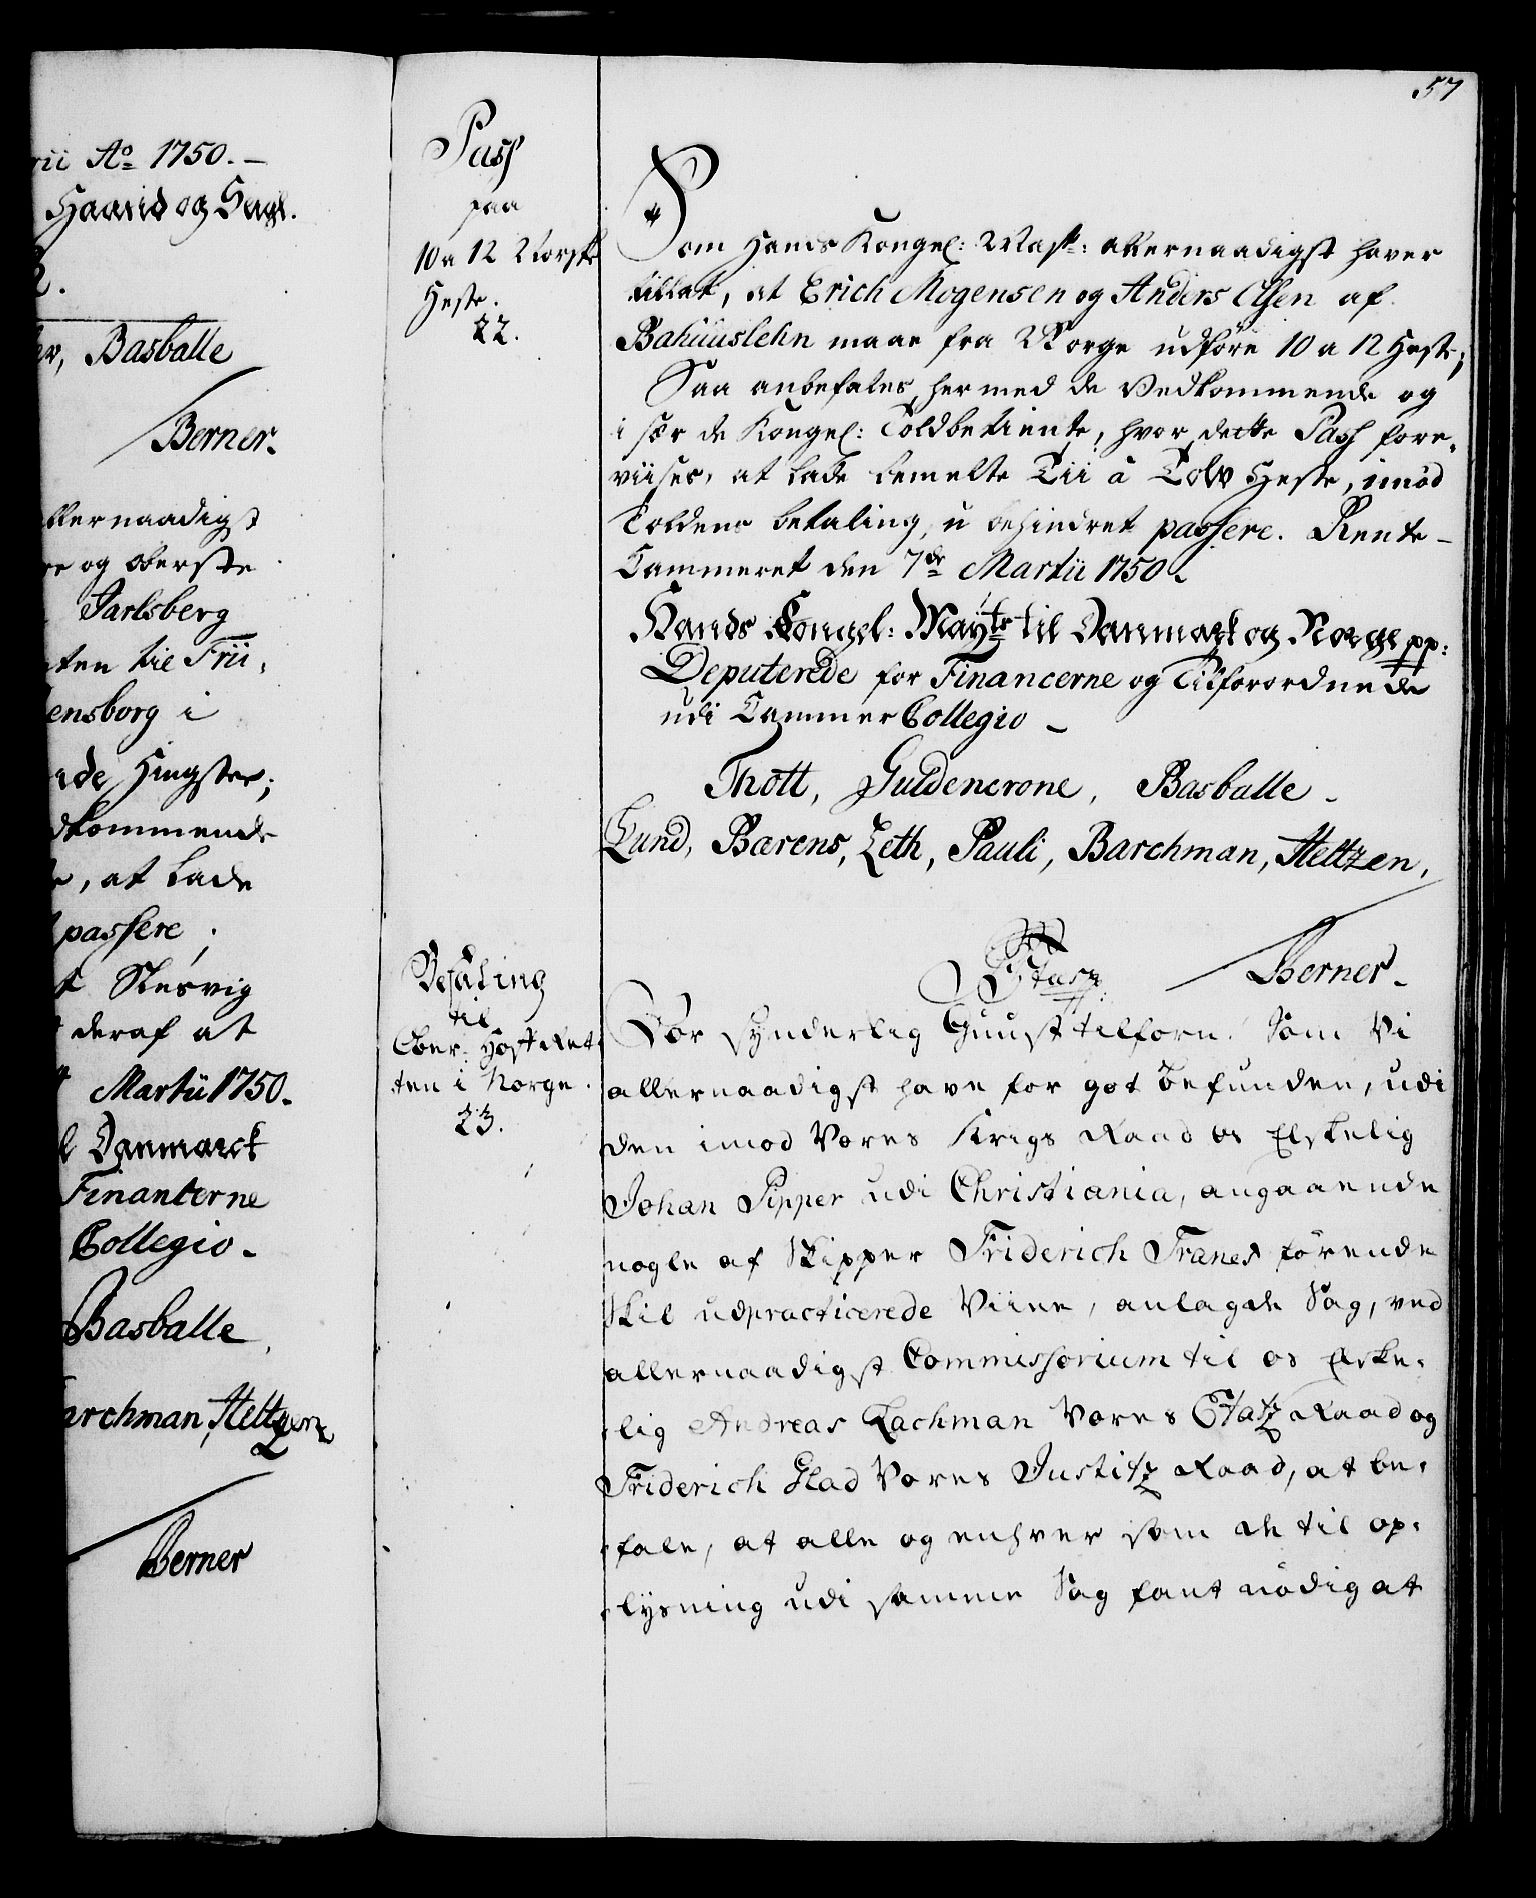 57
rii Ao 1750.
Haand og Segl.
Basballe
Berner.
allernaadigst
og oberste
Jarlsberg
ten til Frii,
ensborg i
de Hingster;
dkommende
, at lade
passere;
Slesvig
deraf at
Martii 1750.
l Danmarck
Finantzerne
Collegio.
Basballe,
archman, Heltzen
Berner
Pass
paa
10 a 12 Norske
Heste.
22.
Som Hands Kongel: Mayt: allernaadigst haver
tilladt, at Erich Mogensen og Anders Olsen af
Bahuuslehn maae fra Norge udföre 10 a 12 Heste;
Saa anbefales hermed de Vedkommende og
i sær de Kongel: Toldbetiente, hvor dette Pass fore,
viises, at lade bemelte Tii á Tolv Heste, imod
Toldens betaling, u behindret passere. Rente-
Cammeret den 7de Martii 1750.
Hands Kongel: Mayts til Danmark og Norge pp:
Deputerede for Financerne og Tilforordnede
udi Cammer Collegio
Thott, Guldencrone, Basballe
Lund, Barens, Zeth, Pauli, Barchman, Heltzen,
Berner.
Befaling
til
Ober: Hoff Ret,
ten i Norge.
23.
Vor synderlig Gunst tilforn! Som Vi
allernaadigst have for got befunden, udi
den imod Vores Krigs Raad os Elskelig
Johan Pipper udi Christiania, angaaende
nogle af Skipper Friderich Tranes förende
Skil udpracticerede Viine, anlagde Sag, ved
allernaadigst Commissorium til os Elske,
lig Andreas Lachman Vores Etatz Raad og
Friderich Glad Vores Justitz Raad, at be,
fale, at alle og enhver som de til op,
lysning udi samme Sag fant nödig at